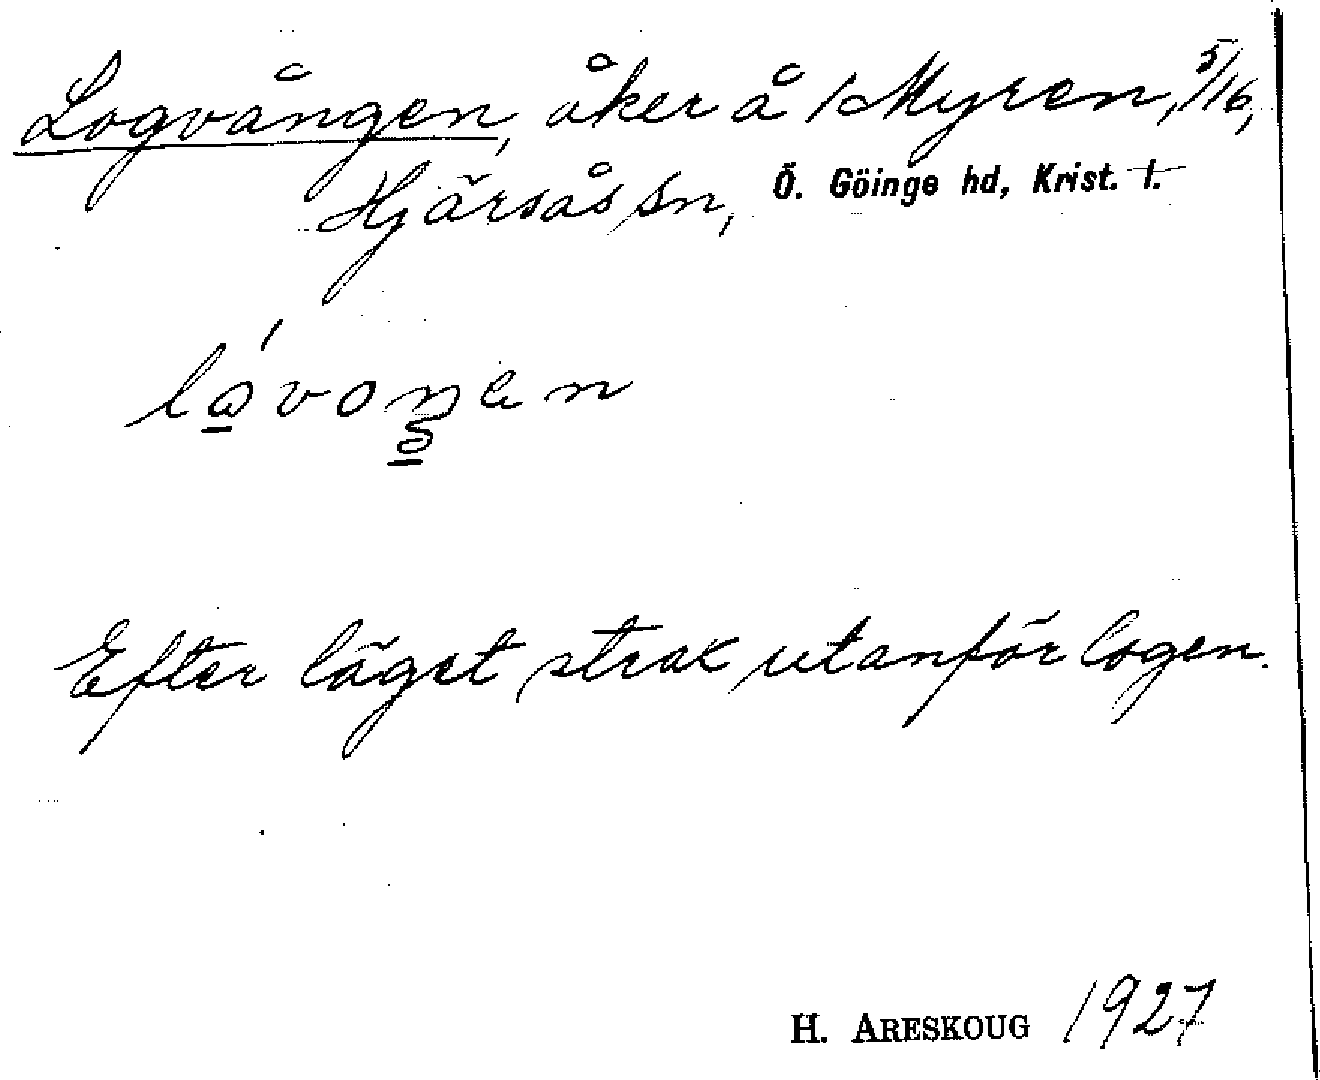 Logvången, åker å Myren, 5/16,
Hjärsås sn, Ö. Göinge hd, Krist. l.
Efter läget strax utanför logen.
H. ARESKOUG 1927